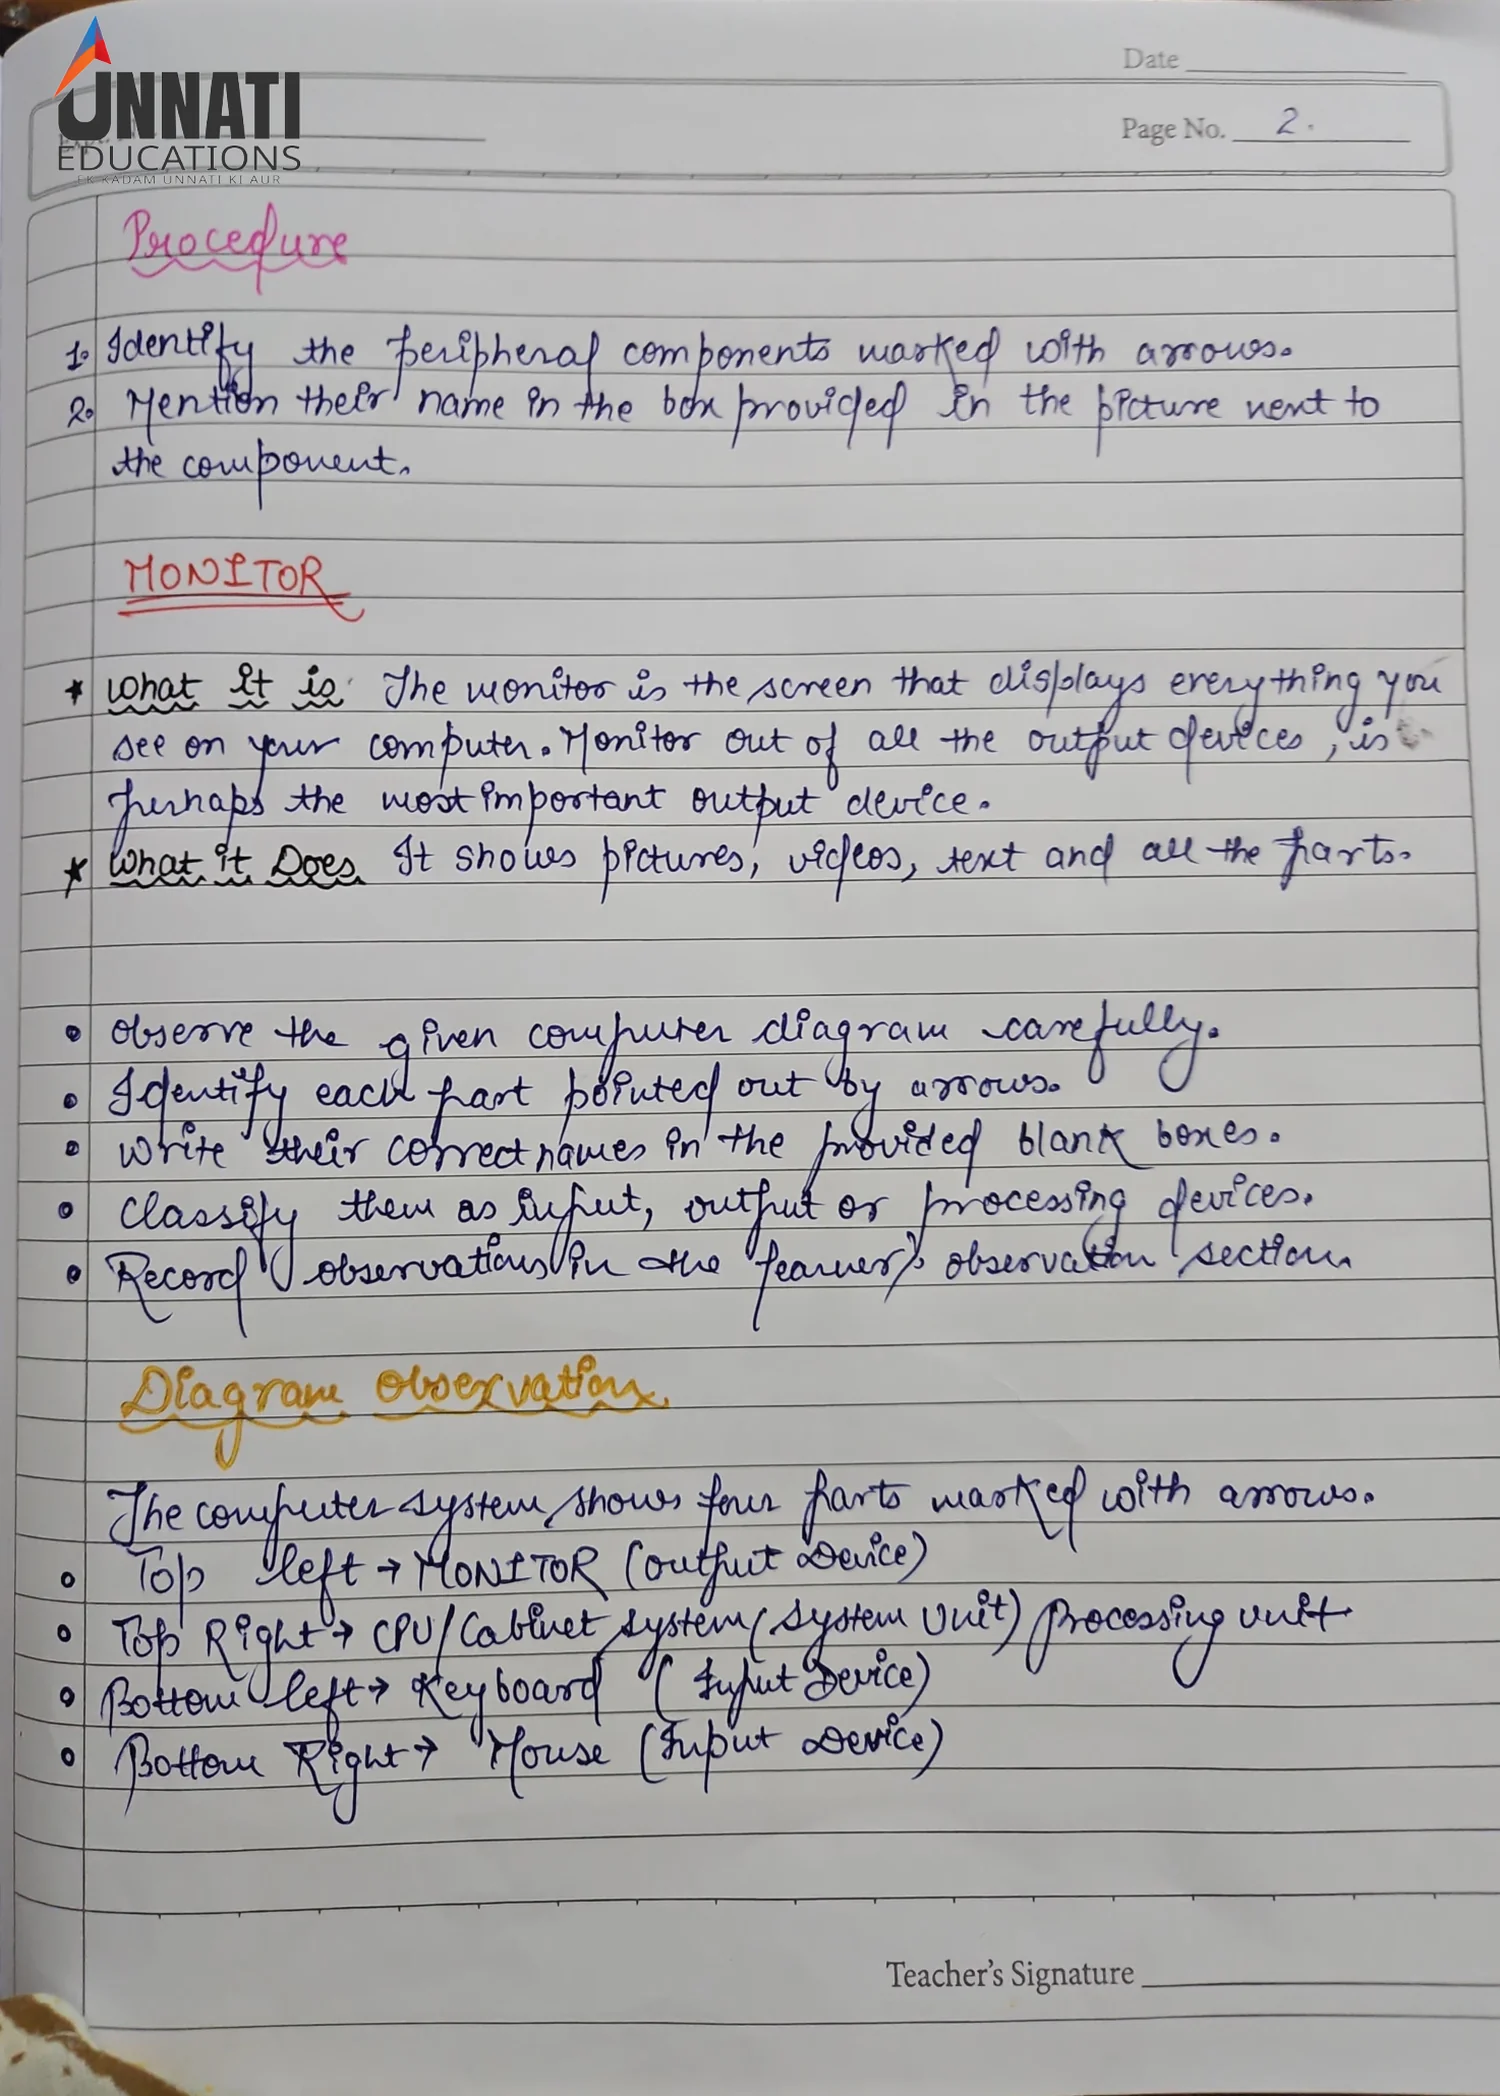 Date
UNNATI
EDUCATIONS
EK KADAM UNNATI KI AUR
Page No. 2.
Procedure
1. Identify the peripheral components marked with arrows.
2. Mention their name in the box provided in the picture next to
the component.
MONITOR
★ What it is The monitor is the screen that displays everything you
see on your computer. Monitor out of all the output devices, is
perhaps the most important output device.
★ What it Does It shows pictures, videos, text and all the parts.
• Observe the given computer diagram carefully.
• Identify each part pointed out by arrows.
• Write their correct names in the provided blank boxes.
• Classify them as input, output or processing devices.
• Record observations in the learner's observation section.
Diagram Observation
The computer system shows four parts marked with arrows.
• Top left → MONITOR (Output Device)
• Top Right → CPU/Cabinet system (System Unit) Processing unit
• Bottom left → Keyboard (Input Device)
• Bottom Right → Mouse (Input Device)
Teacher's Signature